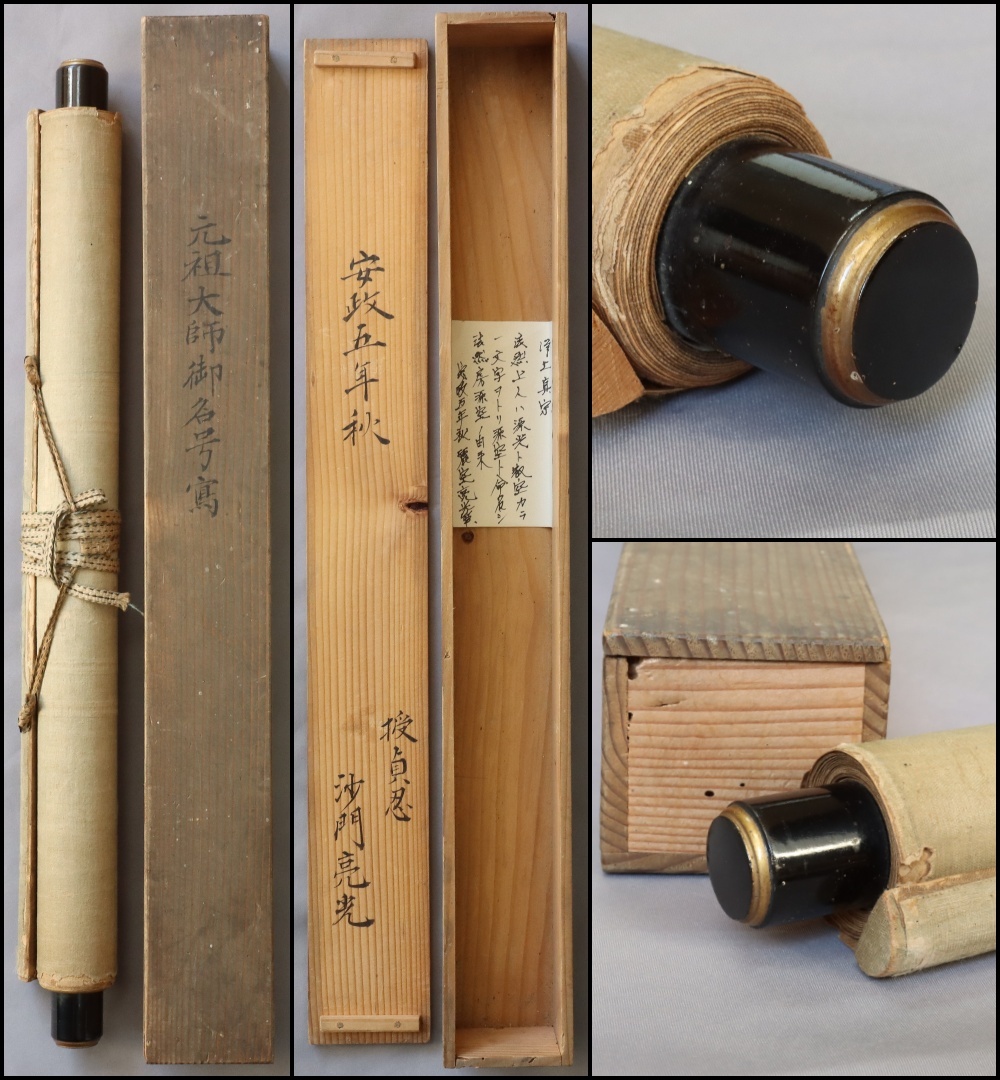 元祖大師御名号寫
安政五年秋
授貞忍
沙門亮光
浄土真宗
法然上人ハ源光ト叡空カラ
一文字ヲトリ源空ト命名シ
法然房源空ノ由来
安政五年秋